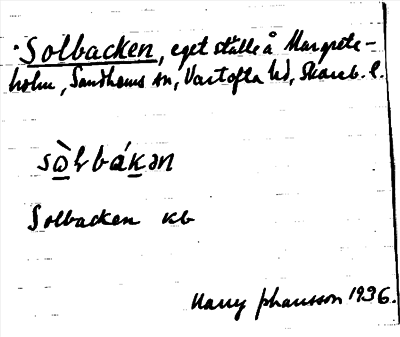 Solbacken, eget ställe å Margrete-
holm, Sandhems sn, Vartofta hd, Skarab. l.
sὼɫbákən
Solbacken kb
Harry Jhansson 1936.